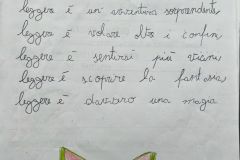 leggere è un'avventura sorprendente
leggere è volare oltre i confin
leggere è sentirsi più vicini
leggere è scoprire la fantasia
leggere è davvero una magia